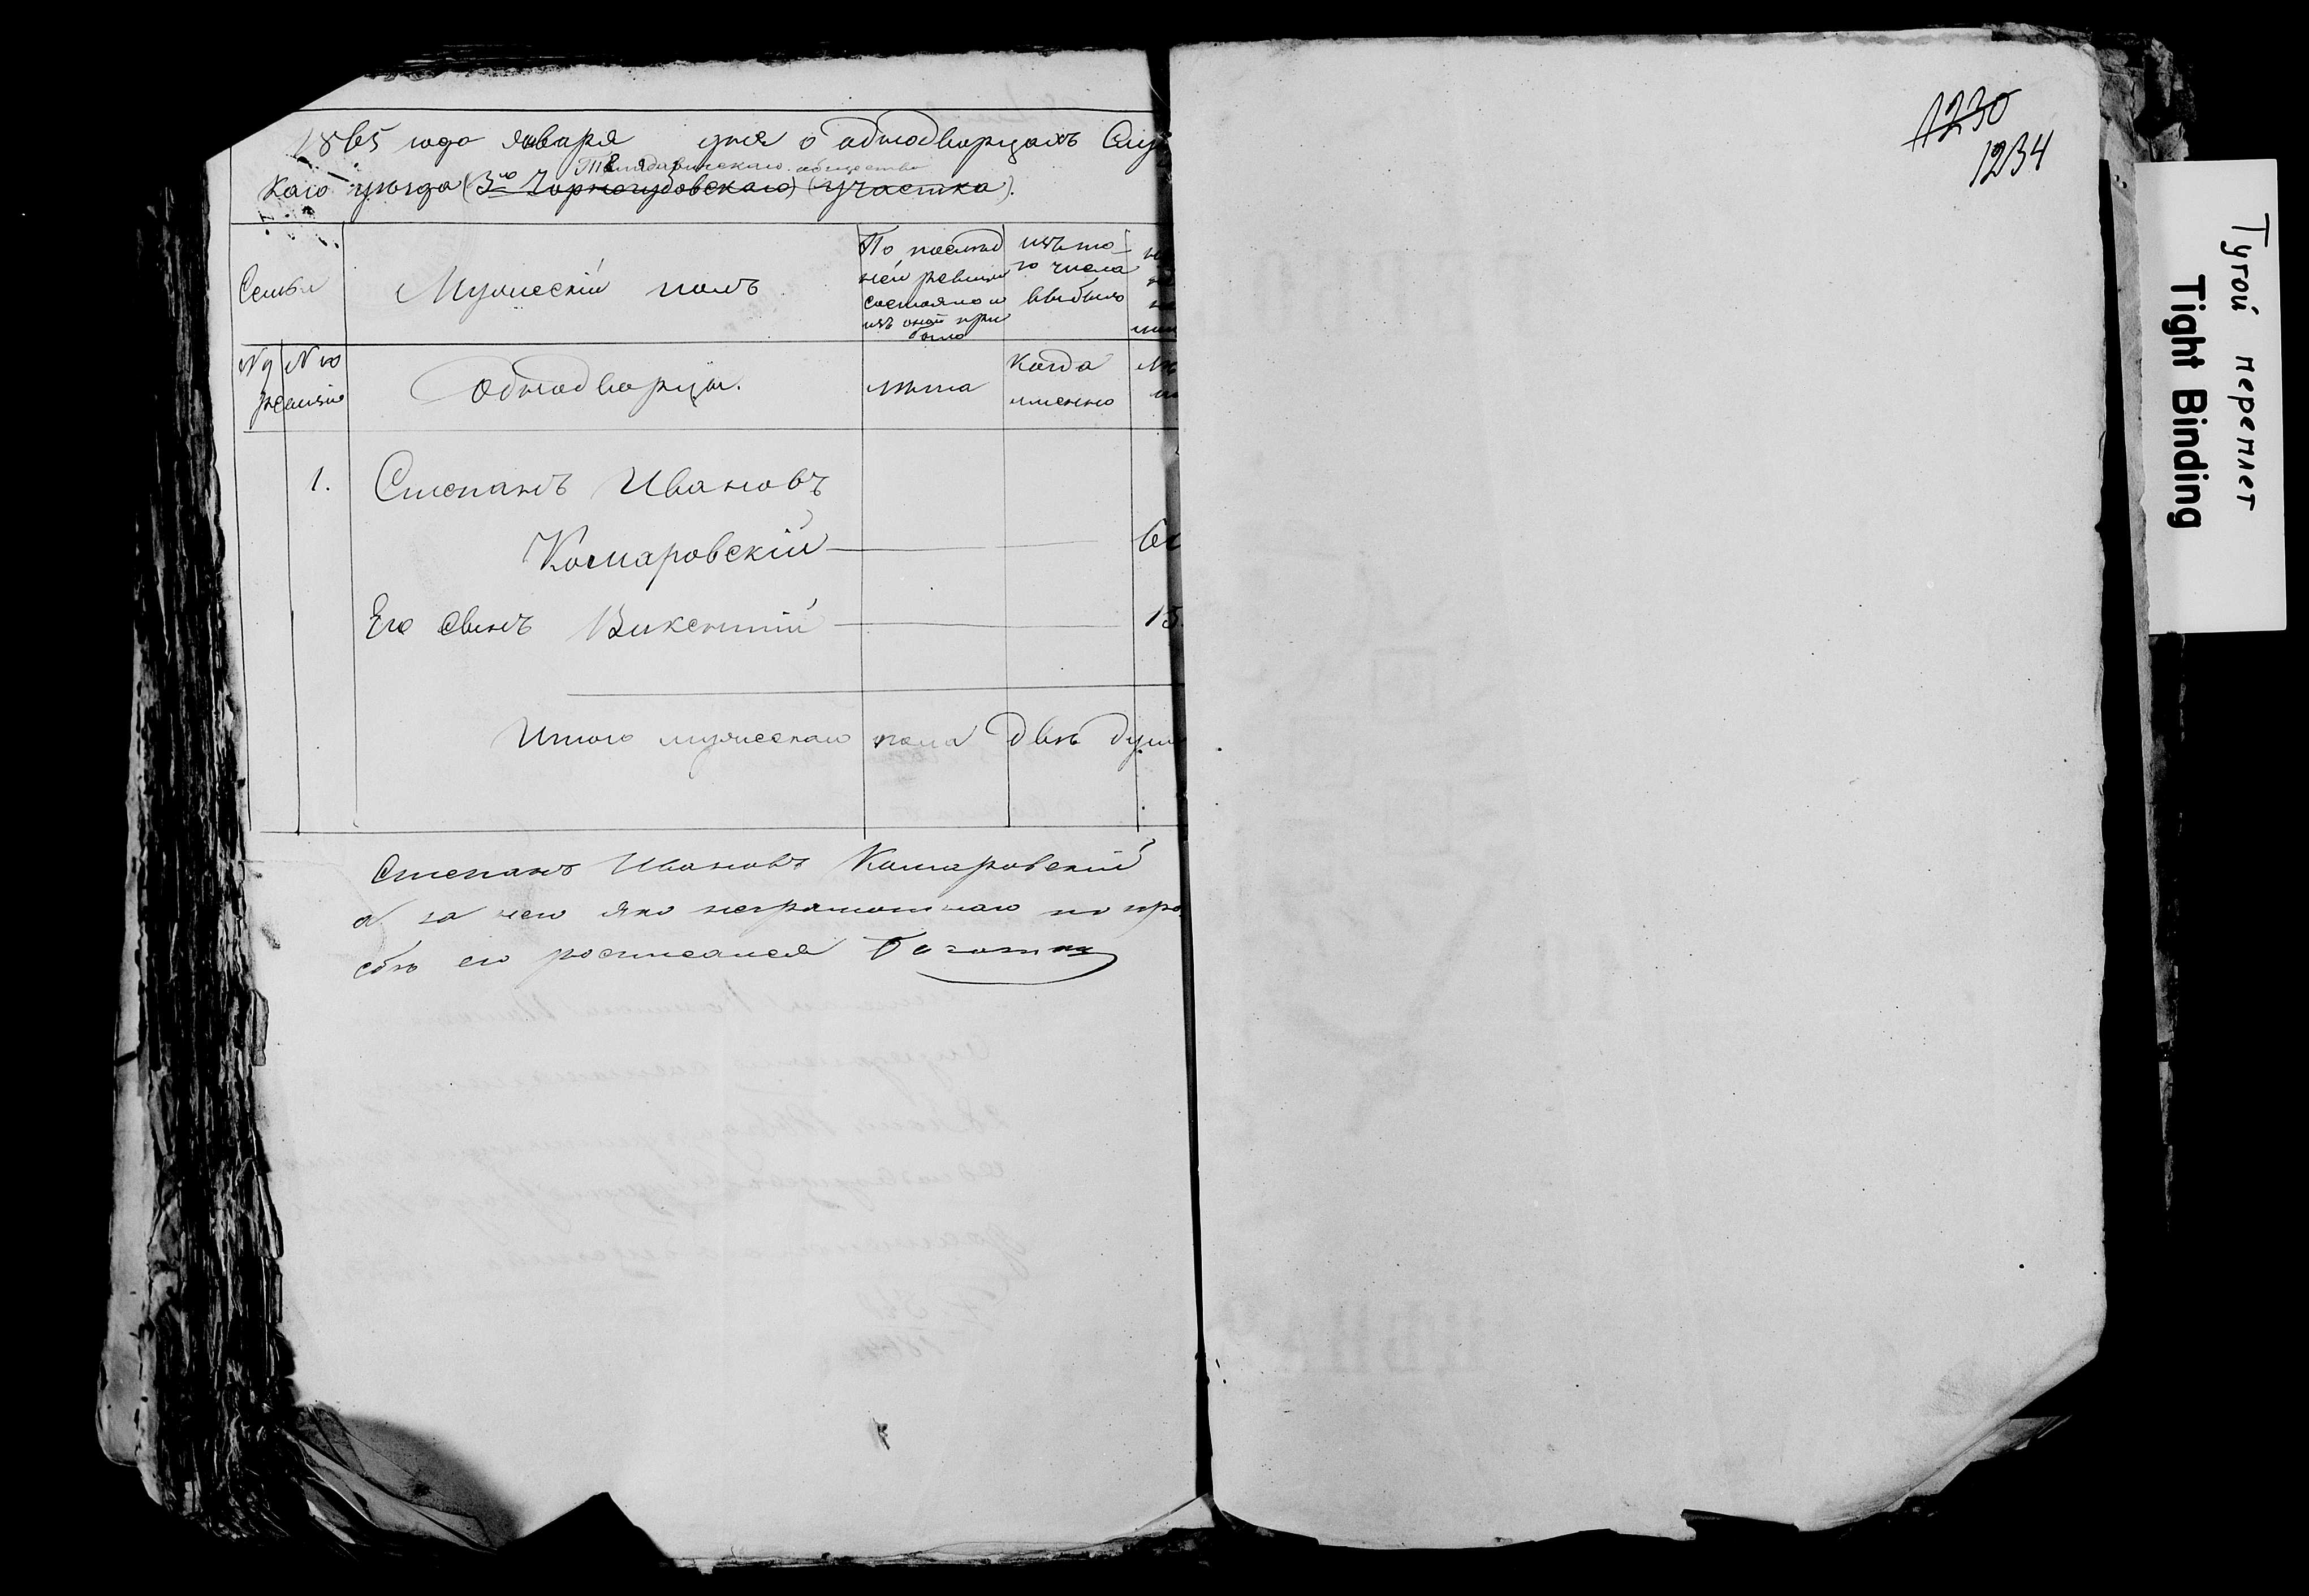 1865 года января дня о однодворцахъ Слу
общества
каго уѣзда (3го участка).
Семьи
Мужескій полъ
По послѣд
ней ревизіи
состояло и
изъ оной при
было
изъ то
го числа
выбыло
№ № по
ревизіи
Однодворцы.
лѣта
Когда
именно
1. Степанъ Ивановъ
Комаровскій
Его сынъ Викентій 15
Итого мужескаго пола двѣ душ
Степанъ Ивановъ Комаровскій
а за него яко неграмотнаго по про
сбѣ его росписался
1230
1234
Тугой переплет
Tight Binding